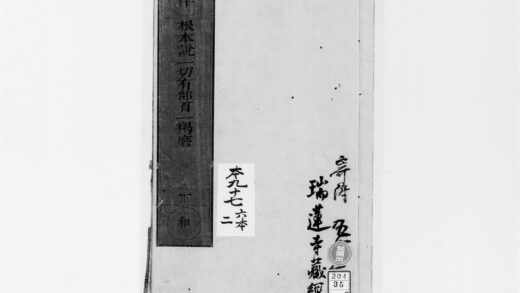 根本説一切有部百一羯磨
和
本九十七 六本
二
寄附
瑞蓮寺藏經
204
35